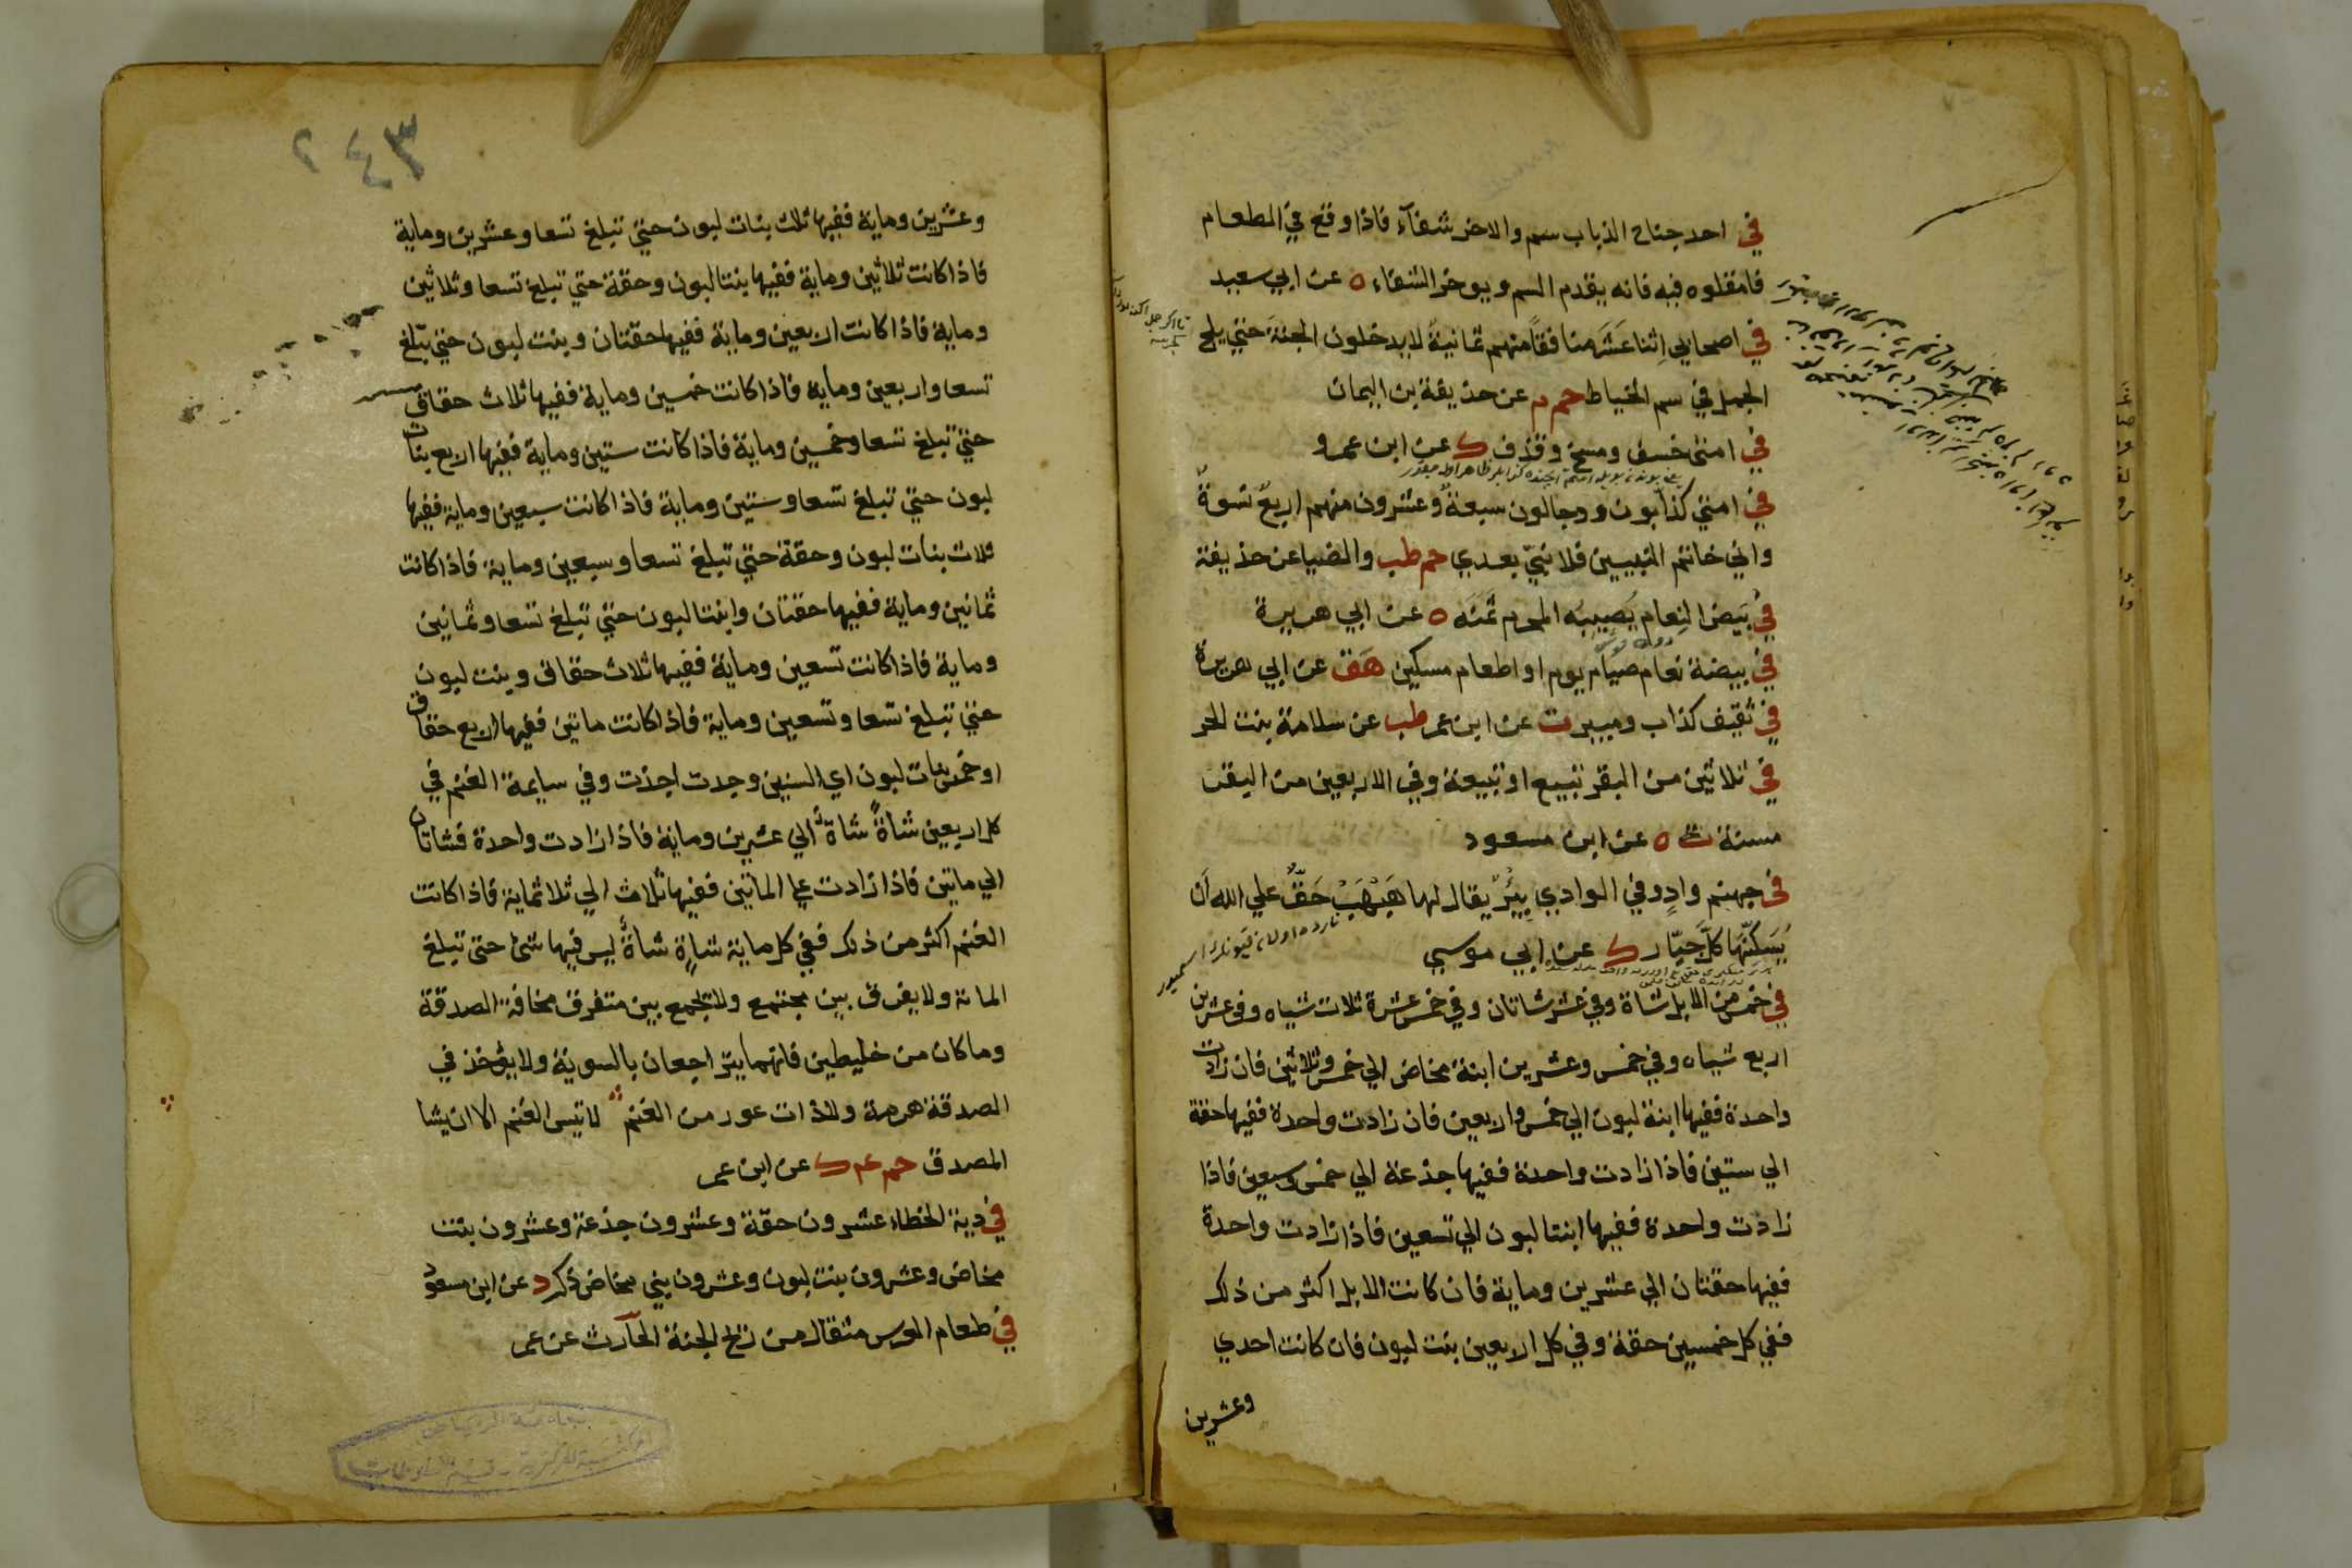 في احد جناح الذباب سم والاخر شفآء فاذا وقع في الطعام
فامقلوه فيه فانه يقدم السم ويوخر الشفاء ه عن ابي سعيد
في اصحابي اثنا عشر منافقا منهم ثمانية لا يدخلون الجنة حتي يلج
الجمل في سم الخياط حم م عن حذيفة بن اليمان
في امتي خسف ومسخ وقذف ك عن ابن عمرو
في امتي كذابون ودجالون سبعة وعشرون منهم اربع نسوة
واني خاتم النبيين فلا نبي بعدي حم طب والضيا عن حذيفة
في بيض النعام يصيبه المحرم ثمنه ه عن ابي هريرة
في بيضة نعام صيام يوم او اطعام مسكين هق عن ابي هريرة
في ثقيف كذاب ومبير ت عن ابن عمر طب عن سلامة بنت الحر
في ثلاثين من البقر تبيع او تبيعة وفي الاربعين من البقر
مسنة ت ه عن ابن مسعود
في جهنم واد وفي الوادي بئر يقال لها هبهب حق علي الله ان
يسكنها كل جبار ك عن ابي موسي
في خمس من الابل شاة وفي عشر شاتان وفي خمس عشرة ثلاث شياه وفي عشرين
اربع شياه وفي خمس وعشرين ابنة مخاض الي خمس وثلاثين فان زادت
واحدة ففيها ابنة لبون الي خمس واربعين فان زادت واحدة ففيها حقة
الي ستين فاذا زادت واحدة ففيها جذعة الي خمس وسبعين فاذا
زادت واحدة ففيها ابنتا لبون الي تسعين فاذا زادت واحدة
ففيها حقتان الي عشرين وماية فان كانت الابل اكثر من ذلك
ففي كل خمسين حقة وفي كل اربعين بنت لبون فان كانت احدي
وعشرين
٢٤٣
وعشرين وماية ففيها ثلاث بنات لبون حتي تبلغ تسعا وعشرين وماية
فاذا كانت ثلاثين وماية ففيها بنتا لبون وحقة حتي تبلغ تسعا وثلاثين
وماية فاذا كانت اربعين وماية ففيها حقتان وبنت لبون حتي تبلغ
تسعا واربعين وماية فاذا كانت خمسين وماية ففيها ثلاث حقاق
حتي تبلغ تسعا وخمسين وماية فاذا كانت ستين وماية ففيها اربع بنات
لبون حتي تبلغ تسعا وستين وماية فاذا كانت سبعين وماية ففيها
ثلاث بنات لبون وحقة حتي تبلغ تسعا وسبعين وماية فاذا كانت
ثمانين وماية ففيها حقتان وابنتا لبون حتي تبلغ تسعا وثمانين
وماية فاذا كانت تسعين وماية ففيها ثلاث حقاق وبنت لبون
حتي تبلغ تسعا وتسعين وماية فاذا كانت ماتين ففيها اربع حقاق
او خمس بنات لبون اي السنين وجدت اخذت وفي سايمة الغنم في
كل اربعين شاة شاة الي عشرين وماية فاذا زادت واحدة فشاتان
الي ماتين فاذا زادت علي الماتين ففيها ثلاث الي ثلاثماية فاذا كانت
الغنم اكثر من ذلك ففي كل ماية شاة شاة ليس فيها شئ حتى تبلغ
الماية ولا يفرق بين مجتمع ولا يجمع بين متفرق مخافة الصدقة
وما كان من خليطين فانهما يتراجعان بالسوية ولا يؤخذ في
الصدقة هرمة ولا ذات عور من الغنم لا تيس الغنم الا ان يشا
المصدق حم عم ك عن ابن عمر
في دية الخطاء عشرون حقة وعشرون جذعة وعشرون بنت
مخاض وعشرون بنت لبون وعشرون بني مخاض ذكر د عن ابن مسعود
في طعام العرس مثقال من ريح الجنة الحارث عن عمر